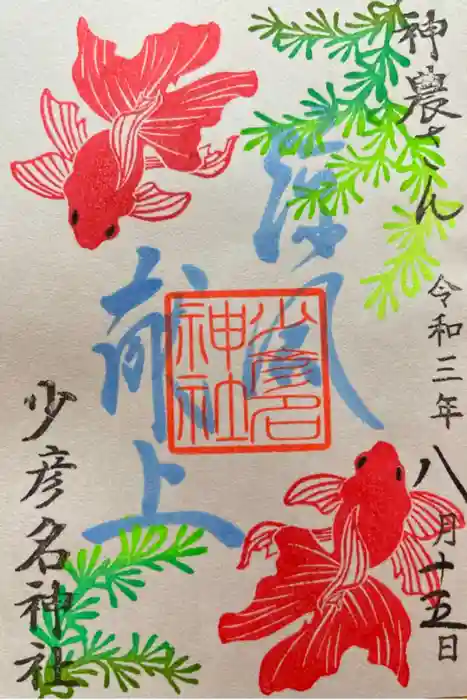 神農さん
令和三年
八月十五日
涼風
献上
少彦名神社
少彦名
神社